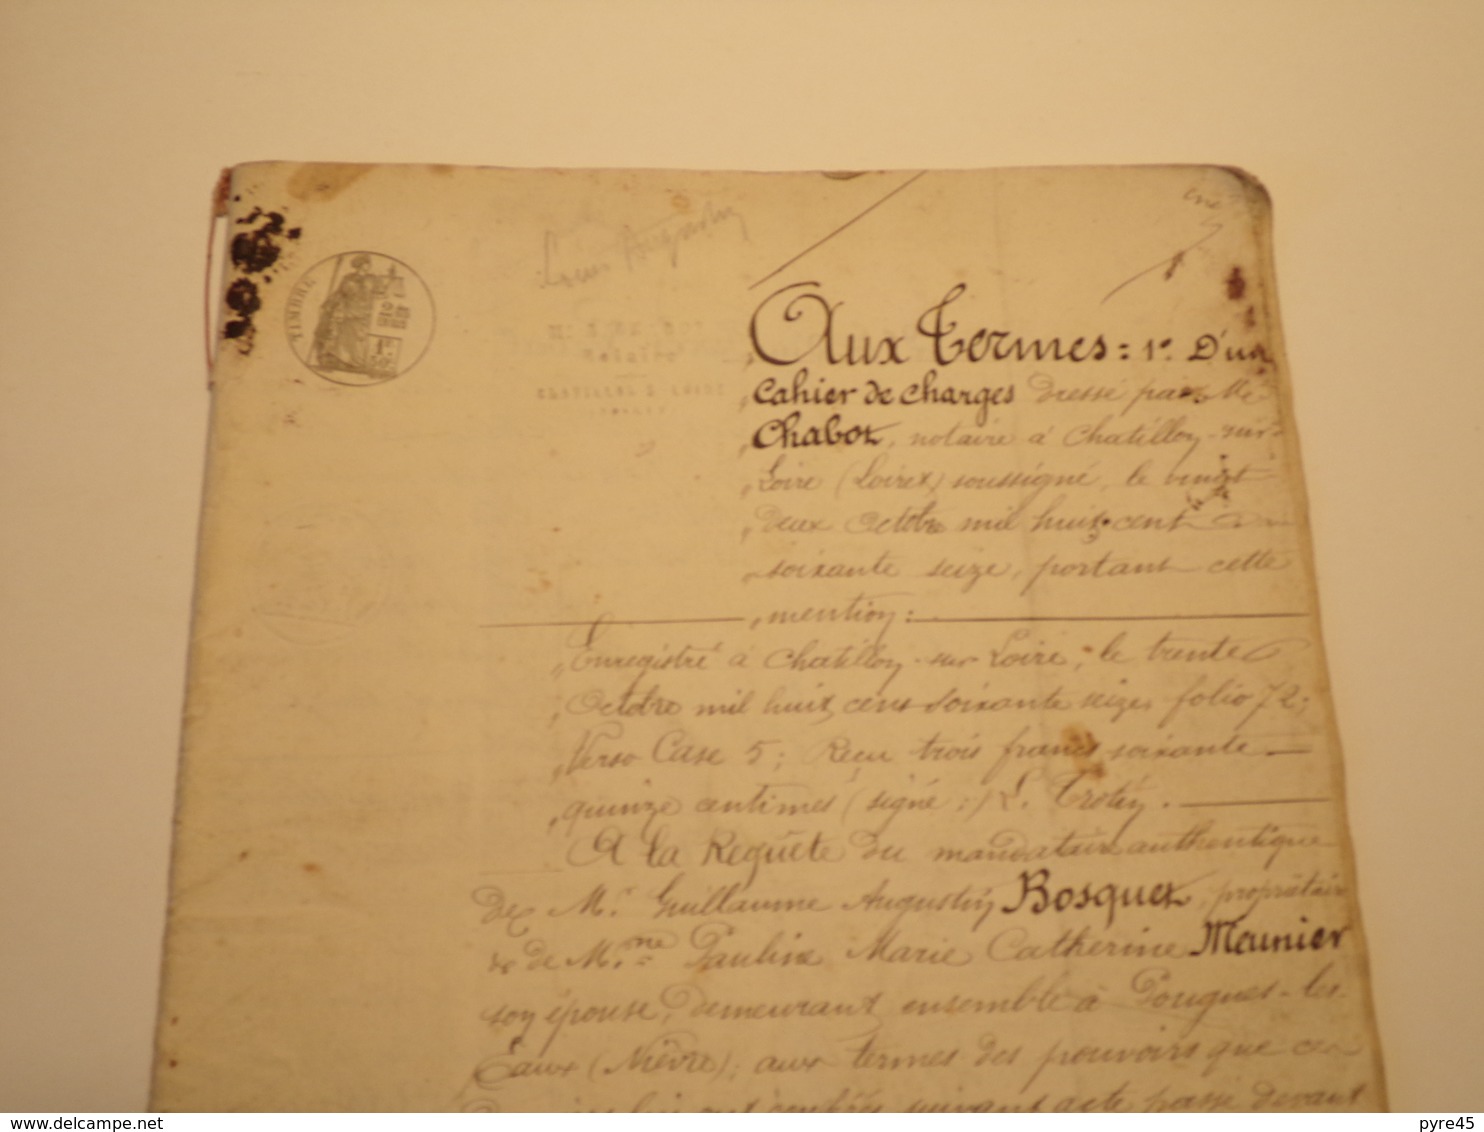 TIMBRE
Louis Augustin
Notaire
Aux Termes = 1º. D'un
Cahier de Charges Dressé par Me
Chabot, notaire à Chatillon-sur-
Loire (Loiret) soussigné, le vingt
deux Octobre mil huit cent
soixante seize, portant cette
mention :
Enregistré à Chatillon-sur Loire, le trente
Octobre mil huit cent soixante seize, folio 72,
Verso Case 5; Reçu trois francs soixante
quinze centimes (signé :)
A la Requête du mandataire authentique
De M.r Guillaume Augustin Bosquet, propriétaire
& de M.me Pauline Marie Catherine Meunier
son épouse, demeurant ensemble à Pougues-les-
Eaux (Nièvre); aux termes des pouvoirs que ces
suivant acte passé devant
delcampe.net
pyre45